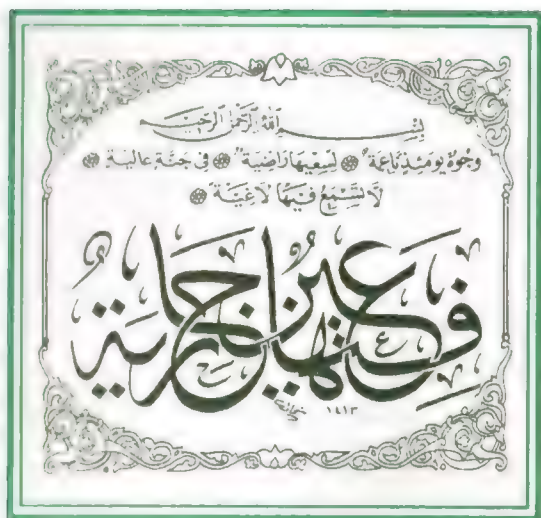 بِسْمِ اللهِ الرَّحْمٰنِ الرَّحِيْمِ
وُجُوْهٌ يَوْمَئِذٍ نَّاعِمَةٌ ۞ لِّسَعْيِهَا رَاضِيَةٌ ۞ فِيْ جَنَّةٍ عَالِيَةٍ ۞
لَّا تَسْمَعُ فِيْهَا لَاغِيَةً ۞
فِيْهَا عَيْنٌ جَارِيَةٌ
١٤١٣